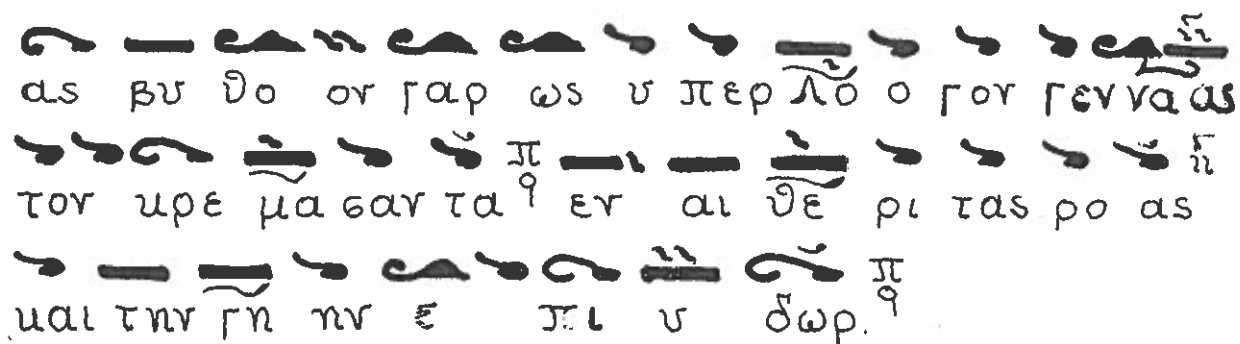 ας βυ θο ον γαρ ως υ περ λο ο γον γεν να ας
τον κρε μα σαν τα π q εν αι θε ρι τας ρο ας
και την γη ην ε πι υ δωρ. π q